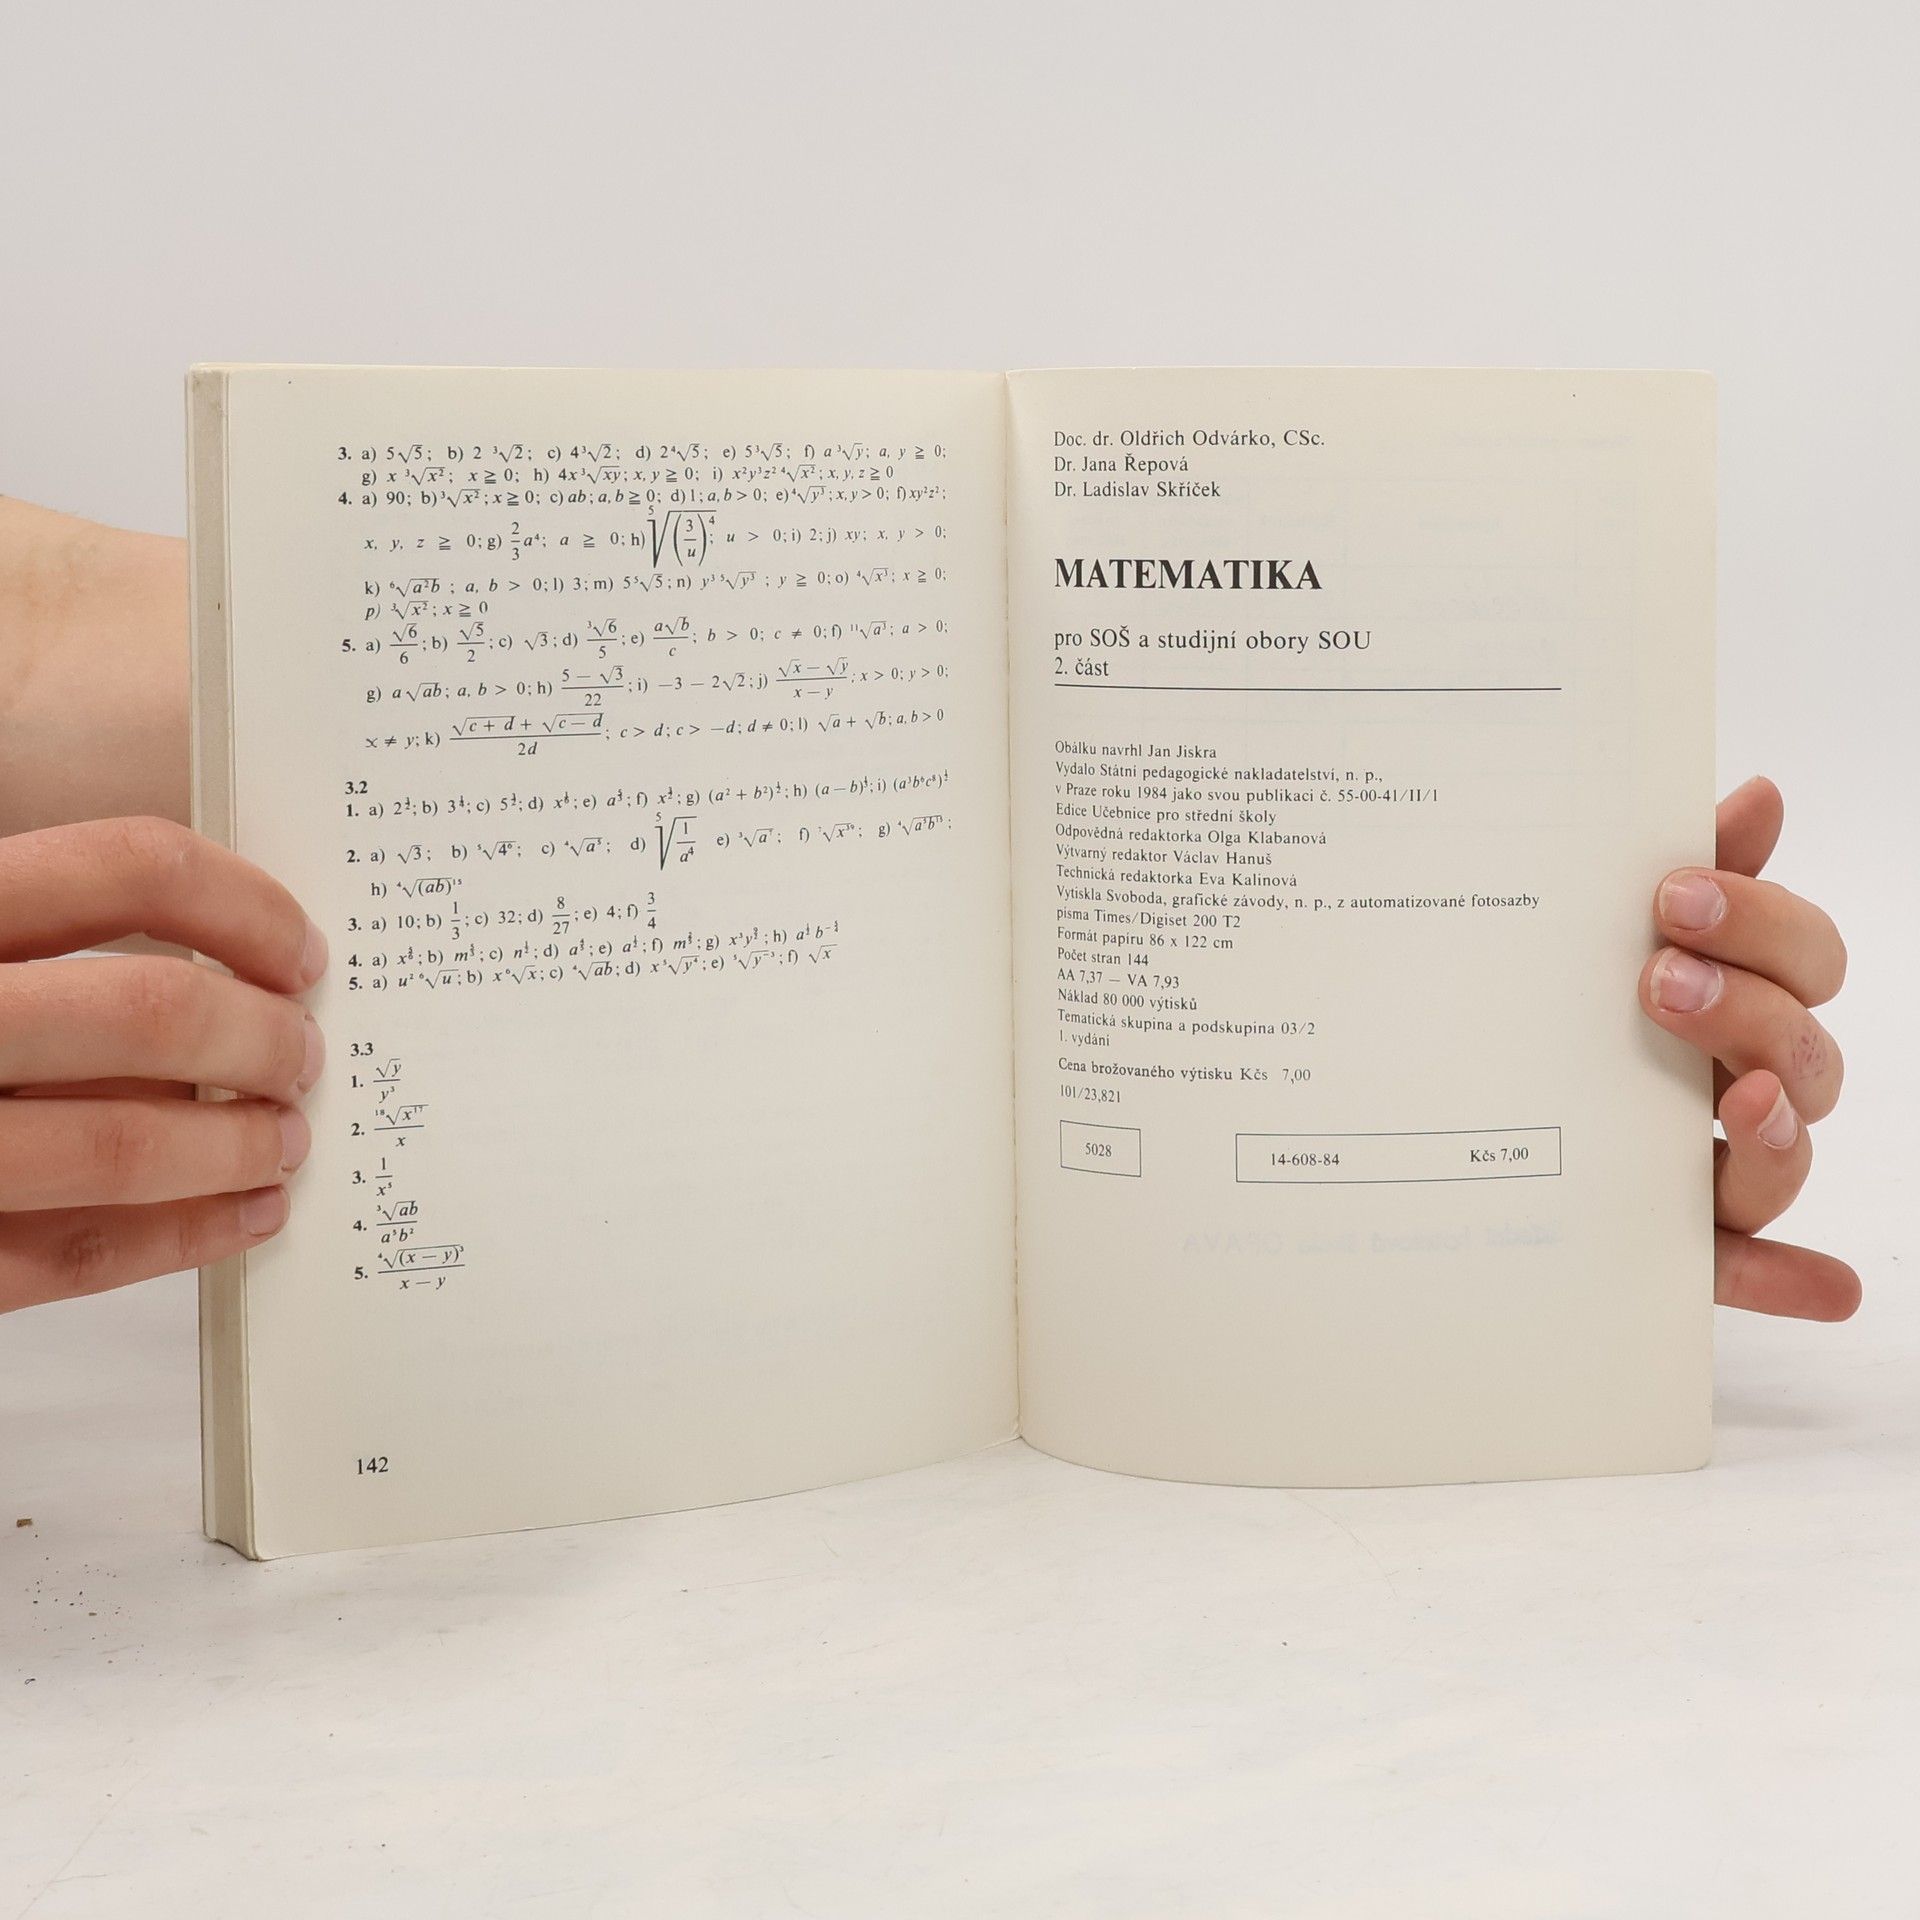 3. a) 5√5; b) 2 ³√2; c) 4³√2; d) 2⁴√5; e) 5³√5; f) a ³√y; a, y ≧ 0;
g) x ³√x²; x ≧ 0; h) 4x³√xy; x, y ≧ 0; i) x²y³z² ⁴√x²; x, y, z ≧ 0
4. a) 90; b) ³√x²; x ≧ 0; c) ab; a, b ≧ 0; d) 1; a, b > 0; e) ⁴√y³; x, y > 0; f) xy²z²;
x, y, z ≧ 0; g) 2/3 a⁴; a ≧ 0; h) ⁵√(3/u)⁴; u > 0; i) 2; j) xy; x, y > 0;
k) ⁶√a²b ; a, b > 0; l) 3; m) 5⁵√5; n) y³ ⁵√y³ ; y ≧ 0; o) ⁴√x³; x ≧ 0;
p) ³√x²; x ≧ 0
5. a) √6/6; b) √5/2; c) √3; d) ³√6/5; e) a√b/c; b > 0; c ≠ 0; f) ¹¹√a³; a > 0;
g) a √ab; a, b > 0; h) (5 − √3)/22; i) −3 − 2√2; j) (√x − √y)/(x − y); x > 0; y > 0;
x ≠ y; k) (√c + d + √c − d)/2d; c > d; c > −d; d ≠ 0; l) √a + √b; a, b > 0
3.2
1. a) b) c) d) e) f) g) h) i)
2. a) √3; b) ⁵√4⁶; c) d) ⁵√1/a⁴ e) f) g)
h) ⁴√(ab)¹⁵
3. a) 10; b) 1/3; c) 32; d) 8/27; e) 4; f) 3/4
4. a) b) c) d) e) f) g) h)
5. a) u² ⁶√u; b) x⁶√x; c) ⁴√ab; d) x⁵√y⁴; e) ⁵√y⁻³; f) √x
3.3
1. √y/y³
2. ¹⁸√x¹⁷/x
3. 1/x⁵
4. ³√ab/a⁵b²
5. ⁴√(x − y)³/x − y
142
Doc. dr. Oldřich Odvárko, CSc.
Dr. Jana Řepová
Dr. Ladislav Skříček
MATEMATIKA
pro SOŠ a studijní obory SOU
2. část
Obálku navrhl Jan Jiskra
Vydalo Státní pedagogické nakladatelství, n. p.,
v Praze roku 1984 jako svou publikaci č. 55-00-41/II/1
Edice Učebnice pro střední školy
Odpovědná redaktorka Olga Klabanová
Výtvarný redaktor Václav Hanuš
Technická redaktorka Eva Kalinová
Vytiskla Svoboda, grafické závody, n. p., z automatizované fotosazby
písma Times/Digiset 200 T2
Formát papíru 86 x 122 cm
Počet stran 144
AA 7,37 — VA 7,93
Náklad 80 000 výtisků
Tematická skupina a podskupina 03/2
1. vydání
Cena brožovaného výtisku Kčs 7,00
101/23,821
5028
14-608-84 Kčs 7,00